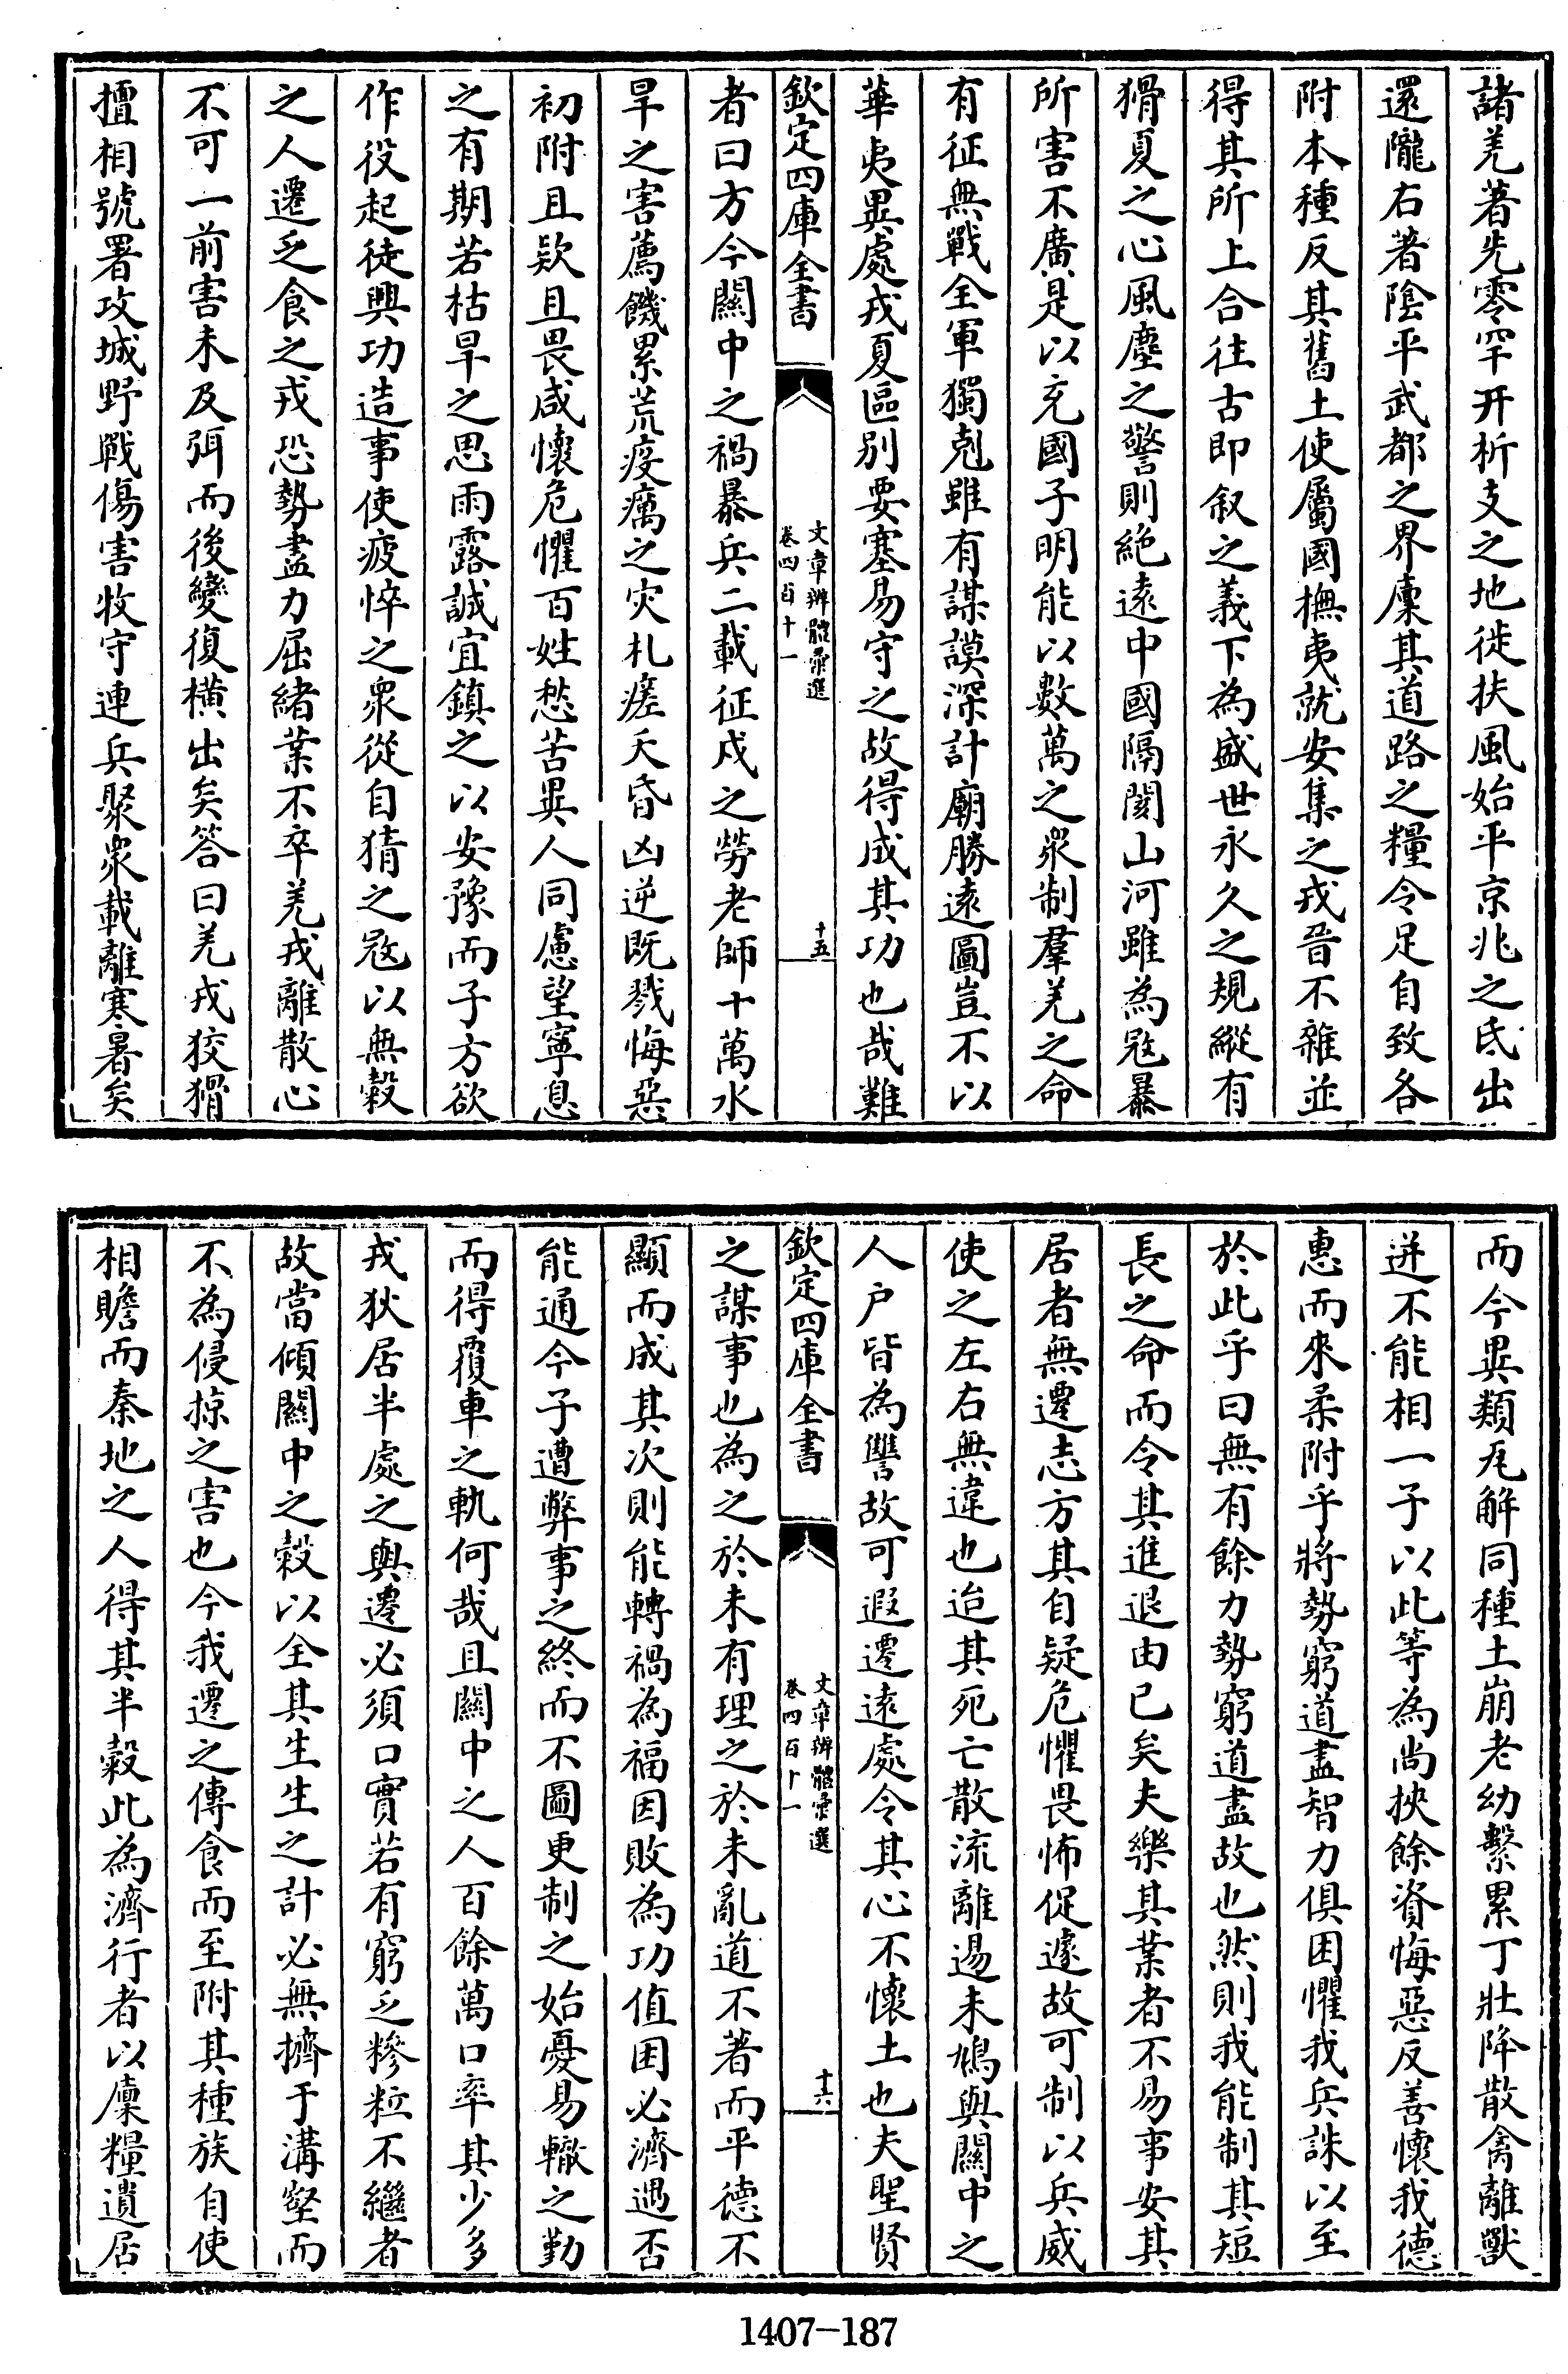 諸羌著先零罕幵析支之地徙扶風始平京兆之氐出
還隴右著陰平武都之界廩其道路之糧令足自致各
附本種反其舊土使屬國撫夷就安集之戎晉不雜並
得其所上合往古即叙之義下為盛世永久之規縱有
猾夏之心風塵之警則絶遠中國隔閡山河雖為冦暴
所害不廣是以充國子明能以數萬之衆制羣羌之命
有征無戰全軍獨剋雖有謀謨深計廟勝遠圖豈不以
華夷異處戎夏區别要塞易守之故得成其功也哉難
欽定四庫全書
文章辨體彚選
卷四百十一
十五
者曰方今關中之禍暴兵二載征戍之勞老師十萬水
旱之害薦饑累荒疫癘之灾札瘥夭昏凶逆既戮悔惡
初附且欵且畏咸懷危懼百姓愁苦異人同慮望寧息
之有期若枯旱之思雨露誠宜鎮之以安豫而子方欲
作役起徒興功造事使疲悴之衆從自猜之冦以無穀
之人遷乏食之戎恐勢盡力屈緒業不卒羌戎離散心
不可一前害未及弭而後變復橫出矣答曰羌戎狡猾
擅相號署攻城野戰傷害牧守連兵聚衆載離寒暑矣
而今異類瓦解同種土崩老幼繫累丁壯降散禽離獸
迸不能相一子以此等為尚挾餘資悔惡反善懷我德
惠而來柔附乎將勢窮道盡智力俱困懼我兵誅以至
於此乎曰無有餘力勢窮道盡故也然則我能制其短
長之命而令其進退由已矣夫樂其業者不易事安其
居者無遷志方其自疑危懼畏怖促遽故可制以兵威
使之左右無違也迨其死亡散流離逷未鳩與關中之
人户皆為讐故可遐遷遠處令其心不懷土也夫聖賢
欽定四庫全書
文章辨體彚選
卷四百十一
十六
之謀事也為之於未有理之於未亂道不著而平德不
顯而成其次則能轉禍為福因敗為功值困必濟遇否
能通今子遭弊事之終而不圖更制之始憂易轍之勤
而得覆車之軌何哉且關中之人百餘萬口率其少多
戎狄居半處之與遷必須口實若有窮乏糝粒不繼者
故當傾關中之穀以全其生生之計必無擠于溝壑而
不為侵掠之害也今我遷之傳食而至附其種族自使
相贍而秦地之人得其半穀此為濟行者以廩糧遺居
1407-187